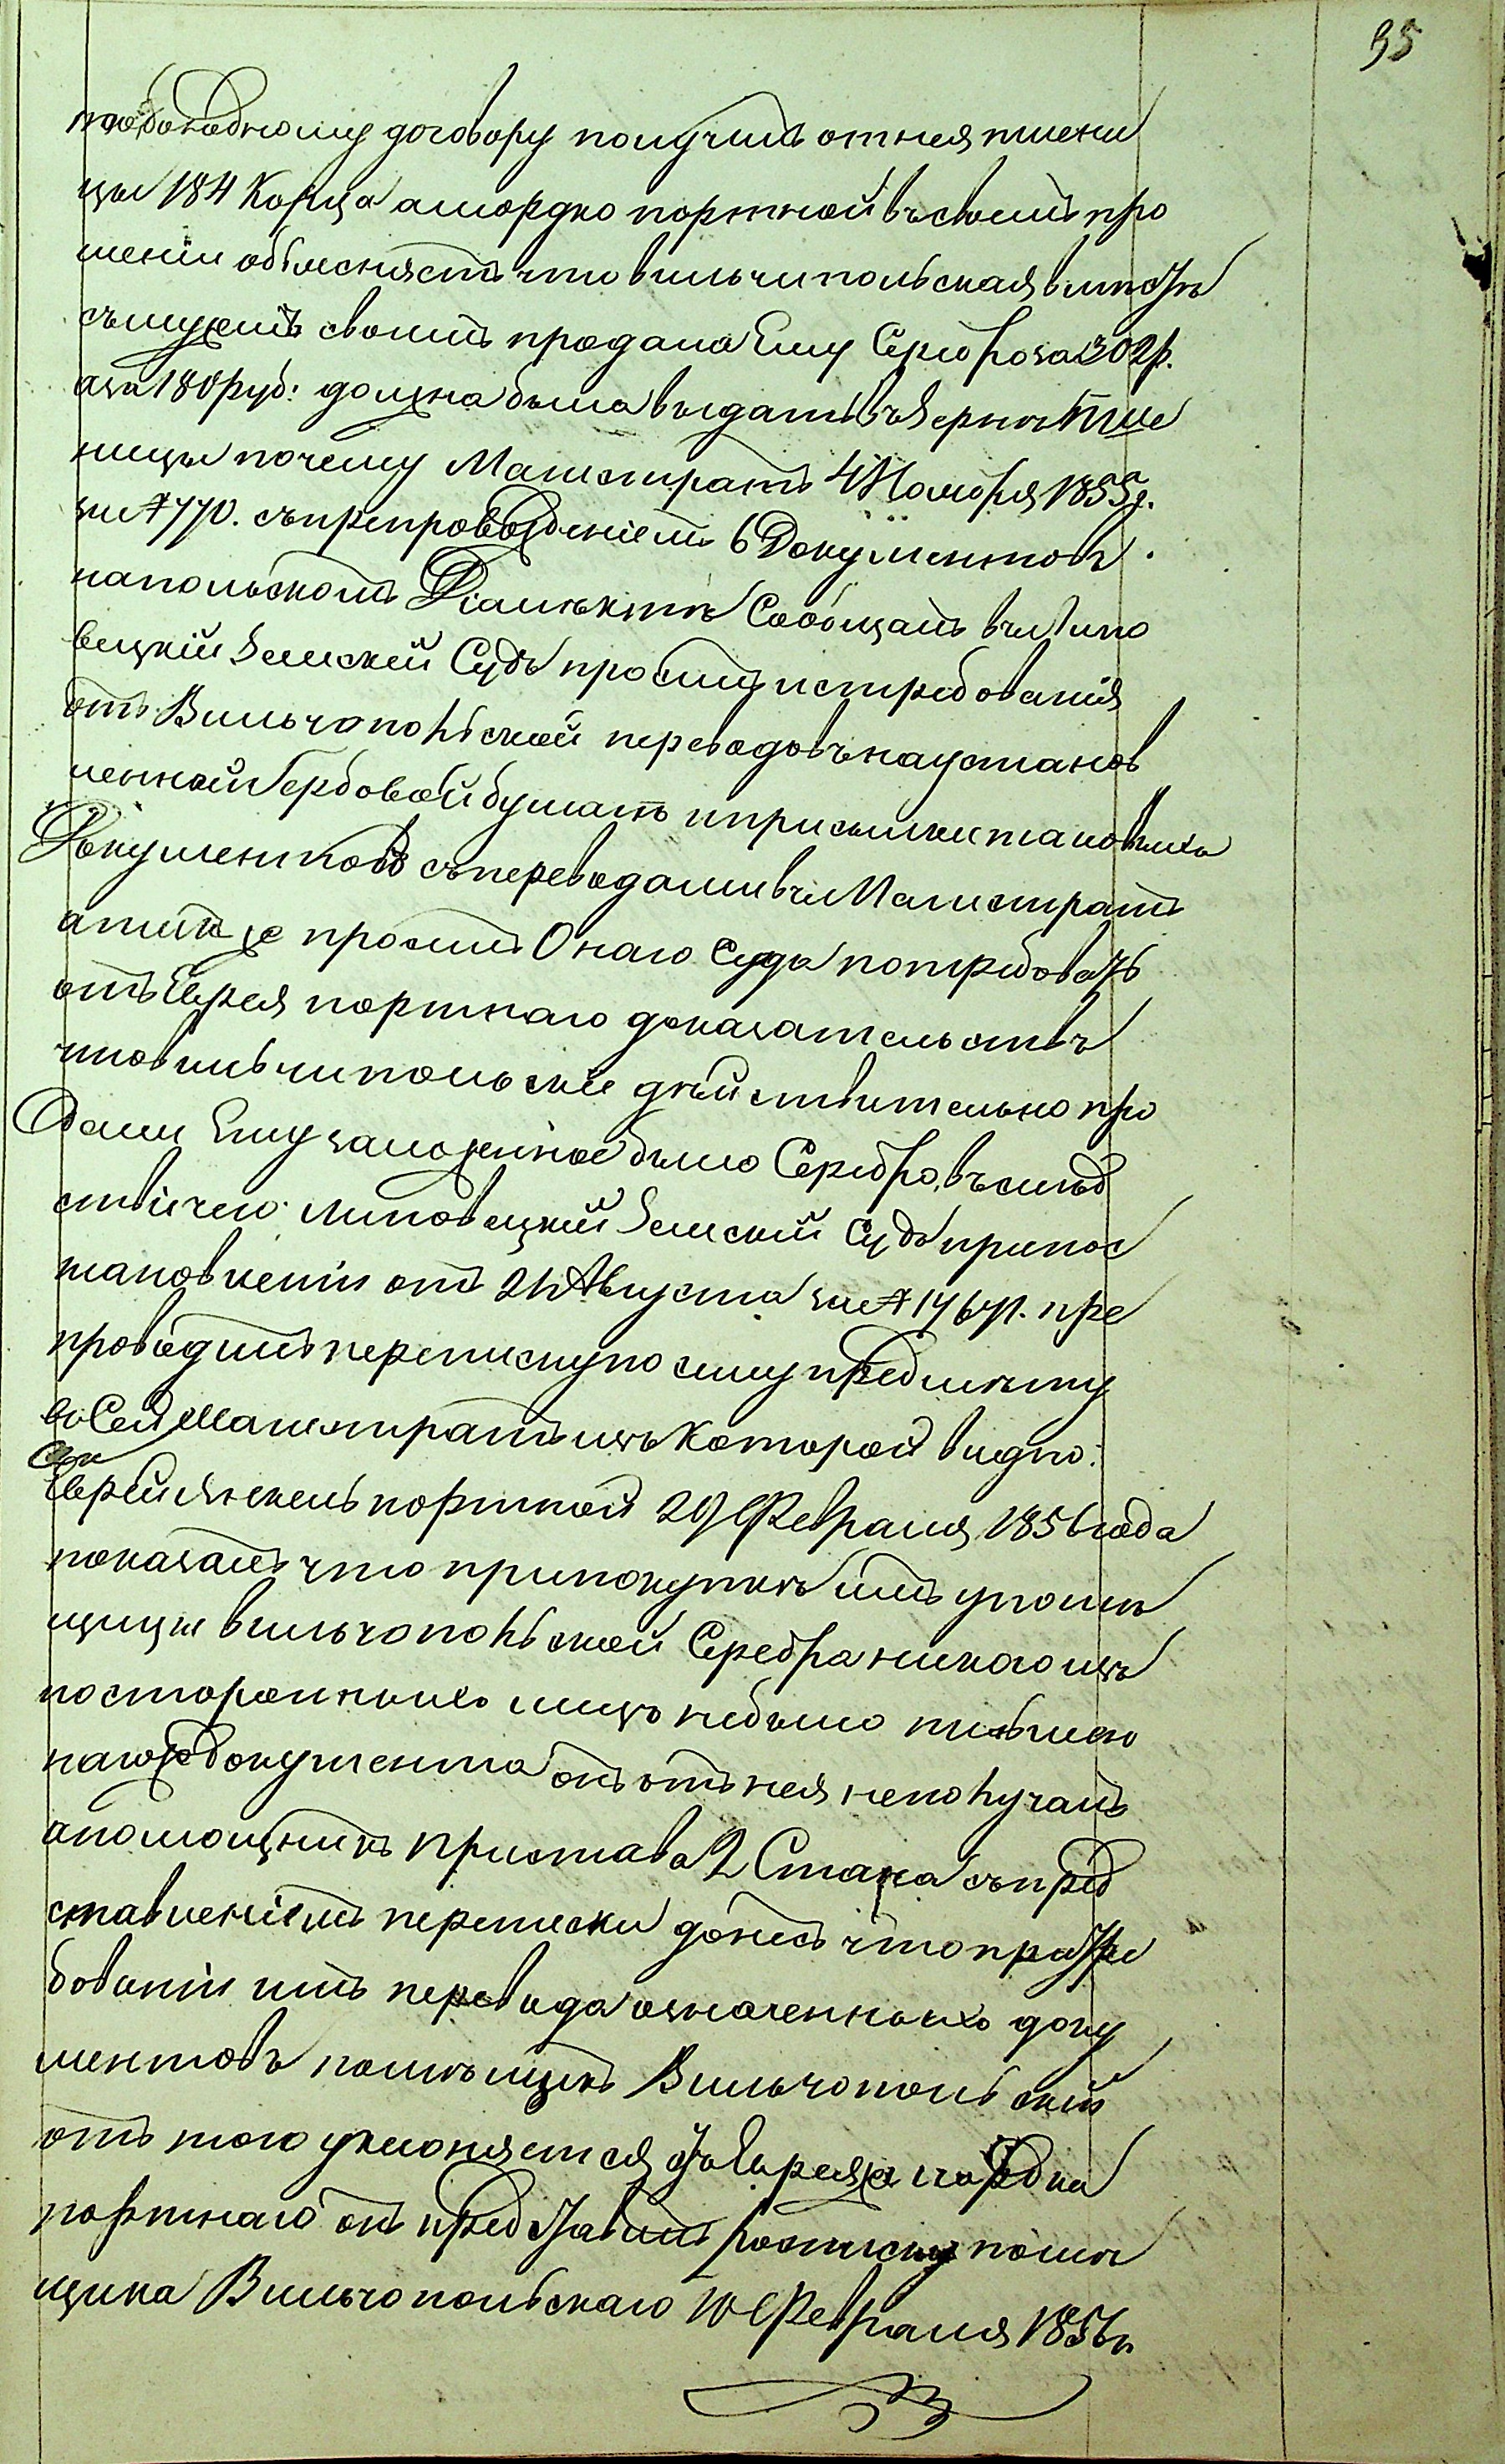 95
договору получить отнея пшени
цы 184 Корца а мордко портной въ своемъ про
шеніи объясняетъ что вильчипольская вмѣстѣ
съ мужемъ своимъ продала Ему Серебро за 302 р.
а за 180 руб: должна была выдать въ Зернѣ пше
ницы почему Магистратъ 4 Ноября 1855 г.
за № 770. съ препровожденіемъ 6 Документовъ.
на польскомъ Діалектѣ Сообщалъ въ Липо
вецкій Земскій Судъ просилъ истребованія
отъ Вильчопольской переводовъ на установ
ленной Гербовой бумагѣ и присылки таковыхъ
Документовъ съ переводами въ Магистратъ
а такъ же просилъ Онаго Суда потребовать
отъ Еврея портнаго доказательствъ
что вильчипольскіе дѣйствительно про
дали Ему заложенное было Серебро, въ слѣд
ствіи чего Липовецкій Земскій Судъ при пос
тановленіи отъ 21 Августа за № препроводилъ переписку по сему предмѣту
въ Сей Магистратъ изъ Которой видно:
Еврей Янкель портной 29 Февраля 1856 года
показалъ что при покупкѣ имъ у помѣ
щицы вильчопольской Серебра никого изъ
постороннихъ лицъ небыло
документа онъ отъ нея неполучалъ
а помощникъ Пристава 2 Стана съ пред
ставленіемъ переписки донесъ что при тре
бованіи имъ перевода означенныхъ доку
ментовъ помѣщикъ Вильчопольскій
отъ того уклоняется
портнаго онъ представилъ росписку помѣ
щика Вильчопольскаго 10 Февраля 1856 г.